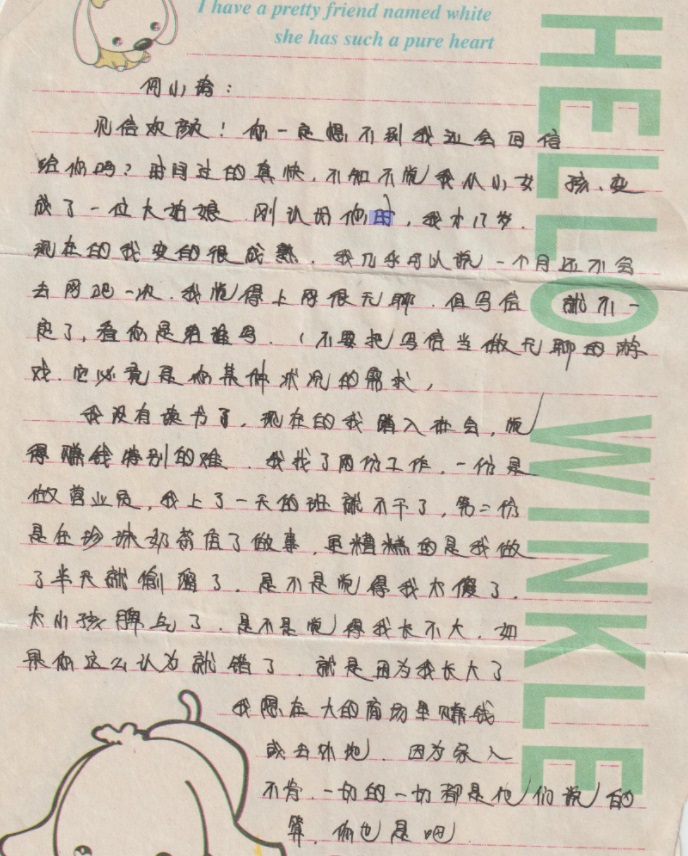 I have a pretty friend named white
she has such a pure heart
HELLO WINKLE
何小海：
见信欢颜！你一定想不到我还会回信
给你吗？时间过的真快，不知不觉我从小女孩，变
成了一位大姑娘 刚认识他时，我才17岁．
现在的我变的很成熟．我几乎可以说 一个月还不会
去网吧一次．我觉得上网很无聊．但写信 就不一
定了，看你是给谁写．（不要把写信当做无聊的游
戏．它必竟是你某种状况的需求，
我没有读书了，现在的我 踏入社会，觉
得 赚钱特别的难 我找了两份工作，一份是
做营业员，我上了一天的班 就不干了，第二份
是在珍珠奶茶店了做事，更糟糕的是我做
了半天就偷溜了．是不是觉得我太傻了．
太小孩脾气了．是不是觉得我长不大．如
果你这么认为就错了．就是因为我长大了
我想在大的商场里赚钱
或去外地．因为家人
不肯．一切的一切都是他们说的
算．你也是吧